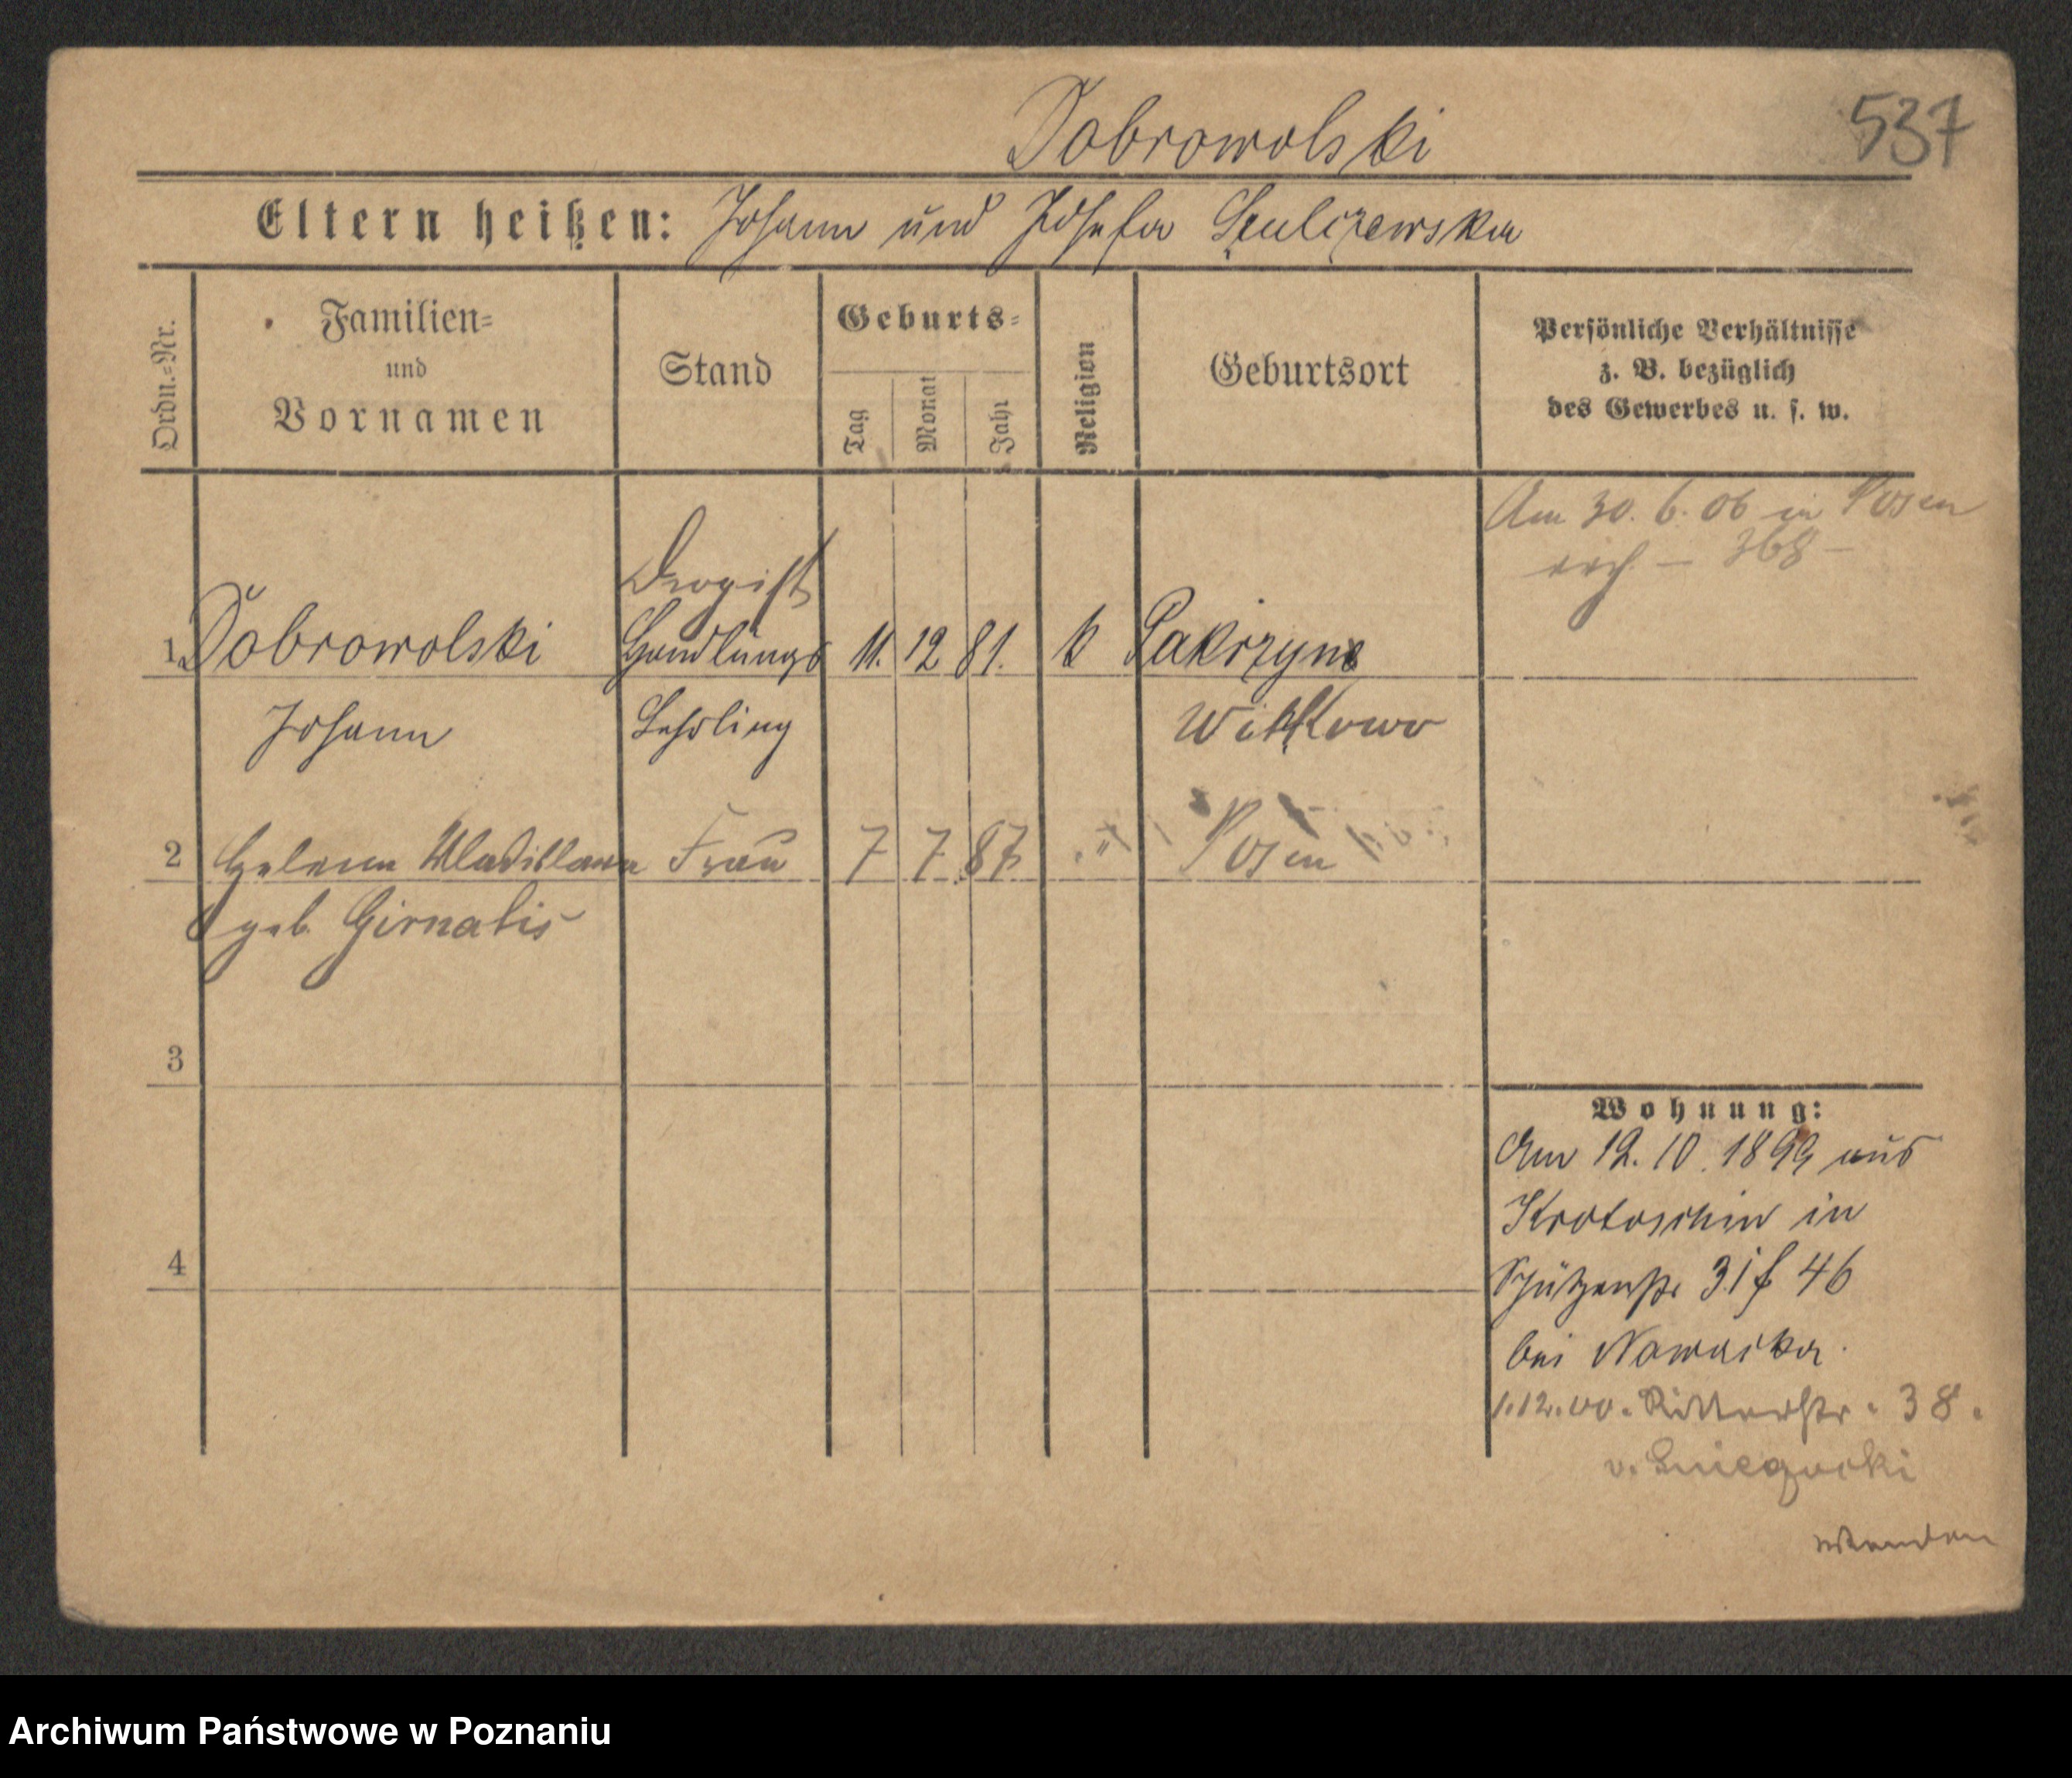 Dobrowolski
537
Eltern heißen: Johann und Josefa Szulczewska
Ordn.-Nr.
Familien-
und
Vornamen
Stand
Geburts-
Tag
Monat
Jahr
Religion
Geburtsort
Persönliche Verhältnisse
z. B. bezüglich
des Gewerbes u. s. w.
Am 30. 6. 06 in Posen
– 368 –
Drogist
1 Dobrowolski Handlungs 11. 12 81. k
Johann Lehrling Witkowo
2 Helena Wladislawa Frau 7 7 87 Posen
geb. Girnatis
3
Wohnung:
Am 12. 10. 1899 aus
Krotoschin in
4
Schützenstr 31 f 46
bei Nawacka.
1.12.00. Ritterstr. 38.
v.
wenden
Archiwum Państwowe w Poznaniu